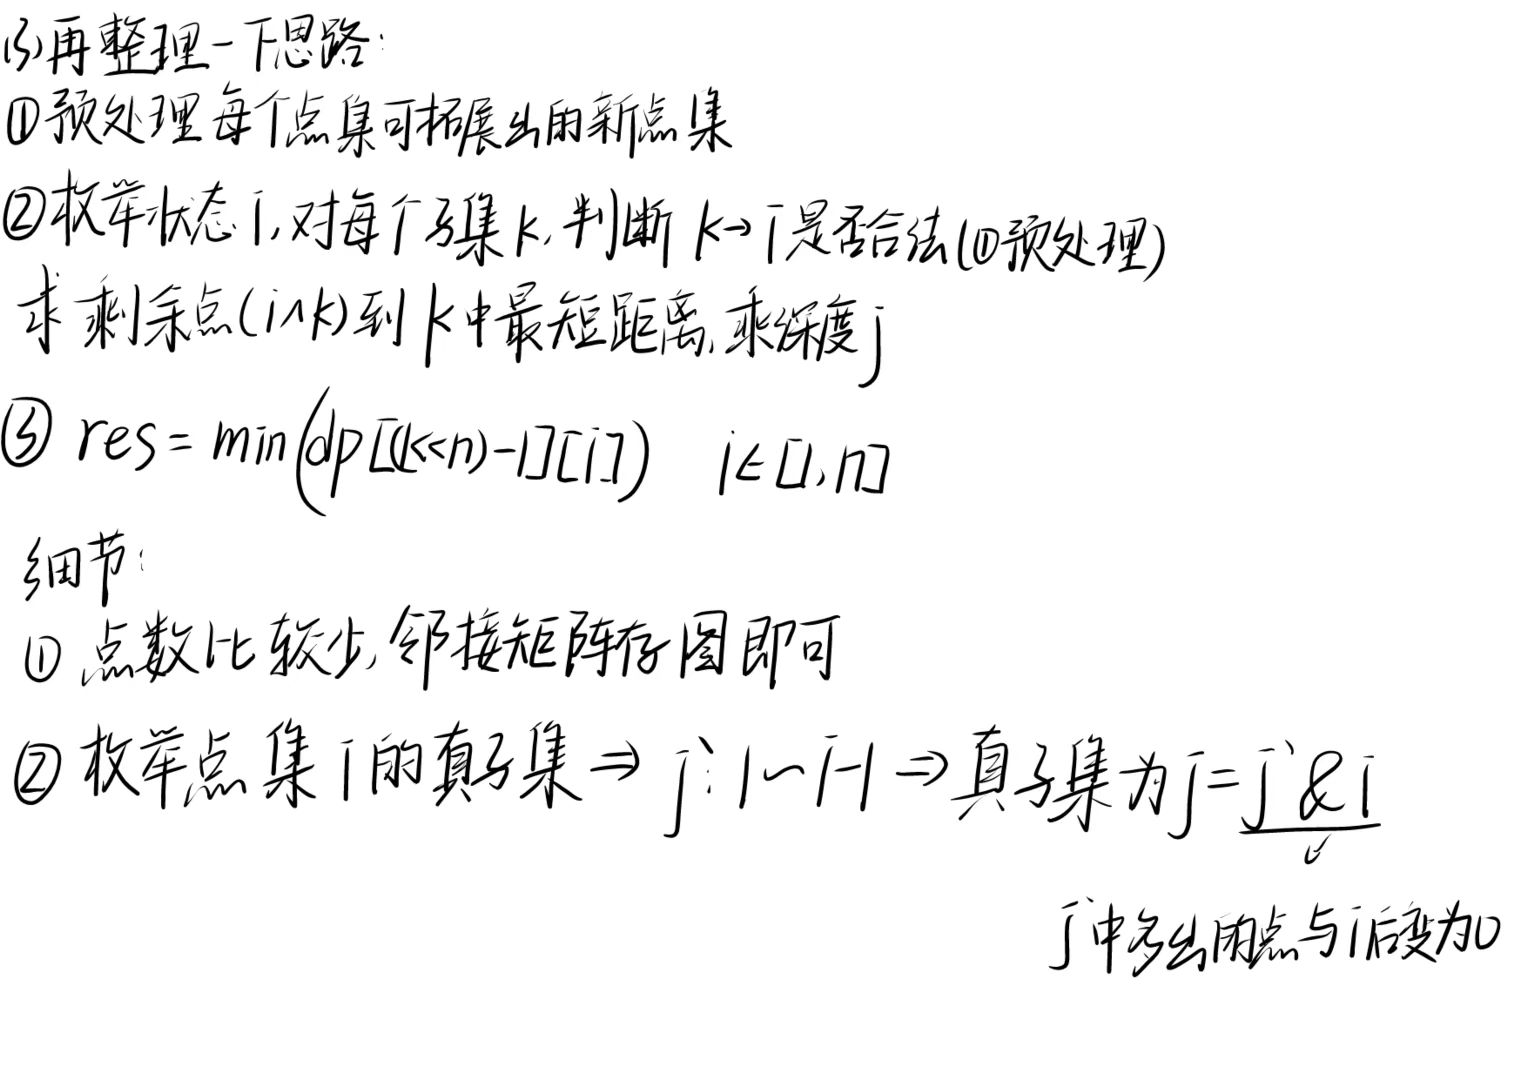 (3)再整理一下思路:
①预处理每个点集可拓展出的新点集
②枚举状态i,对每个子集k,判断k→i是否合法(①预处理)
求剩余点(i^k)到k中最短距离,乘深度j
③ res=min(dp[(1<<n)-1][i]) i∈[1,n]
细节:
① 点数比较少,邻接矩阵存图即可
② 枚举点集i的真子集⇒j`:1~i-1⇒真子集为j=j`&i
j`中多出的点与i后变为0